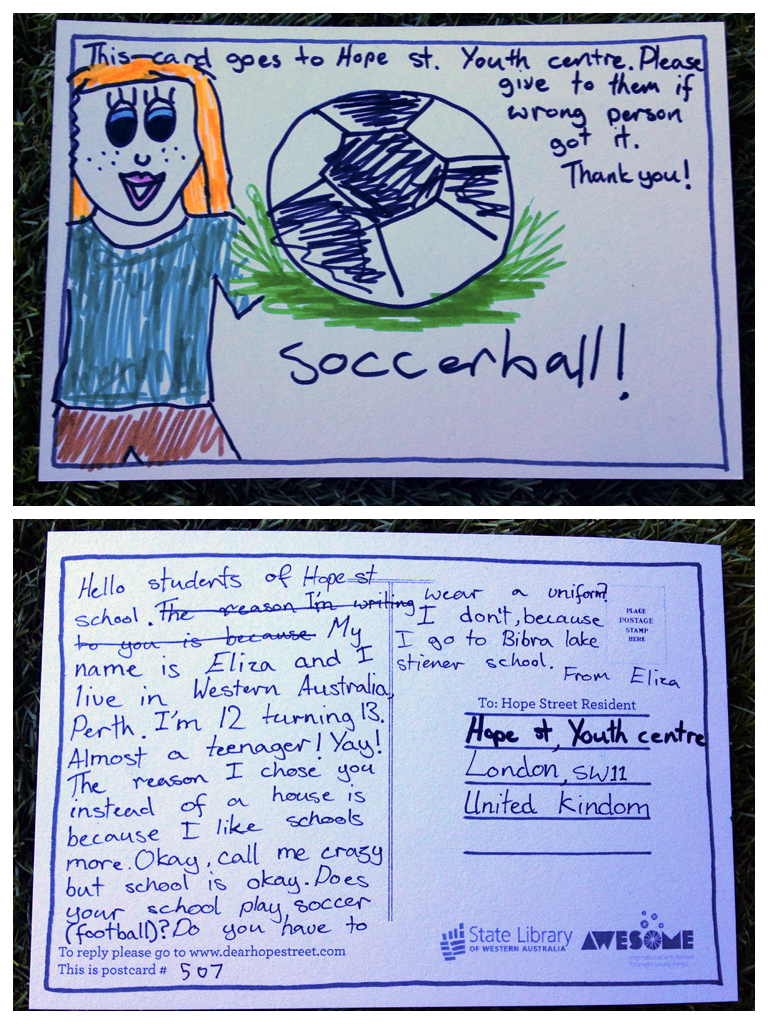 This card goes to Hope st. Youth centre. Please
give to them if
wrong person
got it.
Thank you!
soccerball!
Hello students of Hope st
school. The reason I'm writing
to you is because My
name is Eliza and I
live in Western Australia,
Perth. I'm 12 turning 13.
Almost a teenager! Yay!
The reason I chose you
instead of a house is
because I like schools
more. Okay, call me crazy
but school is okay. Does
your school play soccer
(football)? Do you have to
wear a uniform?
I don't, because
I go to Bibra lake
stiener school.
From Eliza
PLACE
POSTAGE
STAMP
HERE
To: Hope Street Resident
Hope st, Youth centre
London, SW11
United Kindom
To reply please go to www.dearhopestreet.com
This is postcard # 507
State Library
OF WESTERN AUSTRALIA
AWESOME